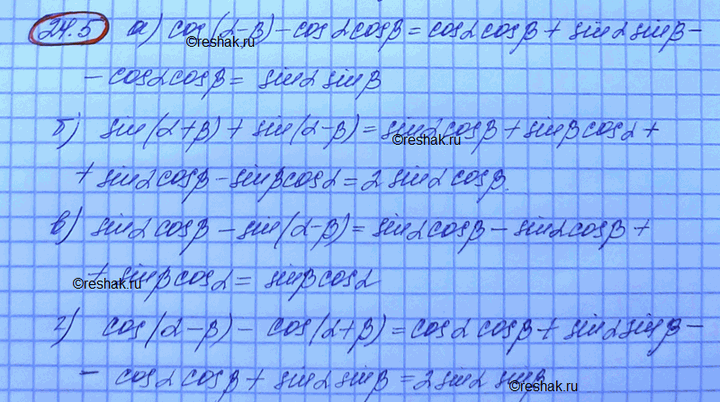 24.5 а) cos(α-β) - cosα cosβ = cosα cosβ + sinα sinβ -
- cosα cosβ = sinα sinβ
б) sin(α+β) + sin(α-β) = sinα cosβ + sinβ cosα +
+ sinα cosβ - sinβ cosα = 2 sinα cosβ.
в) sinα cosβ - sin(α-β) = sinα cosβ - sinα cosβ +
+ sinβ cosα = sinβ cosα
г) cos(α-β) - cos(α+β) = cosα cosβ + sinα sinβ -
- cosα cosβ + sinα sinβ = 2 sinα sinβ
©reshak.ru
©reshak.ru
©reshak.ru
©reshak.ru